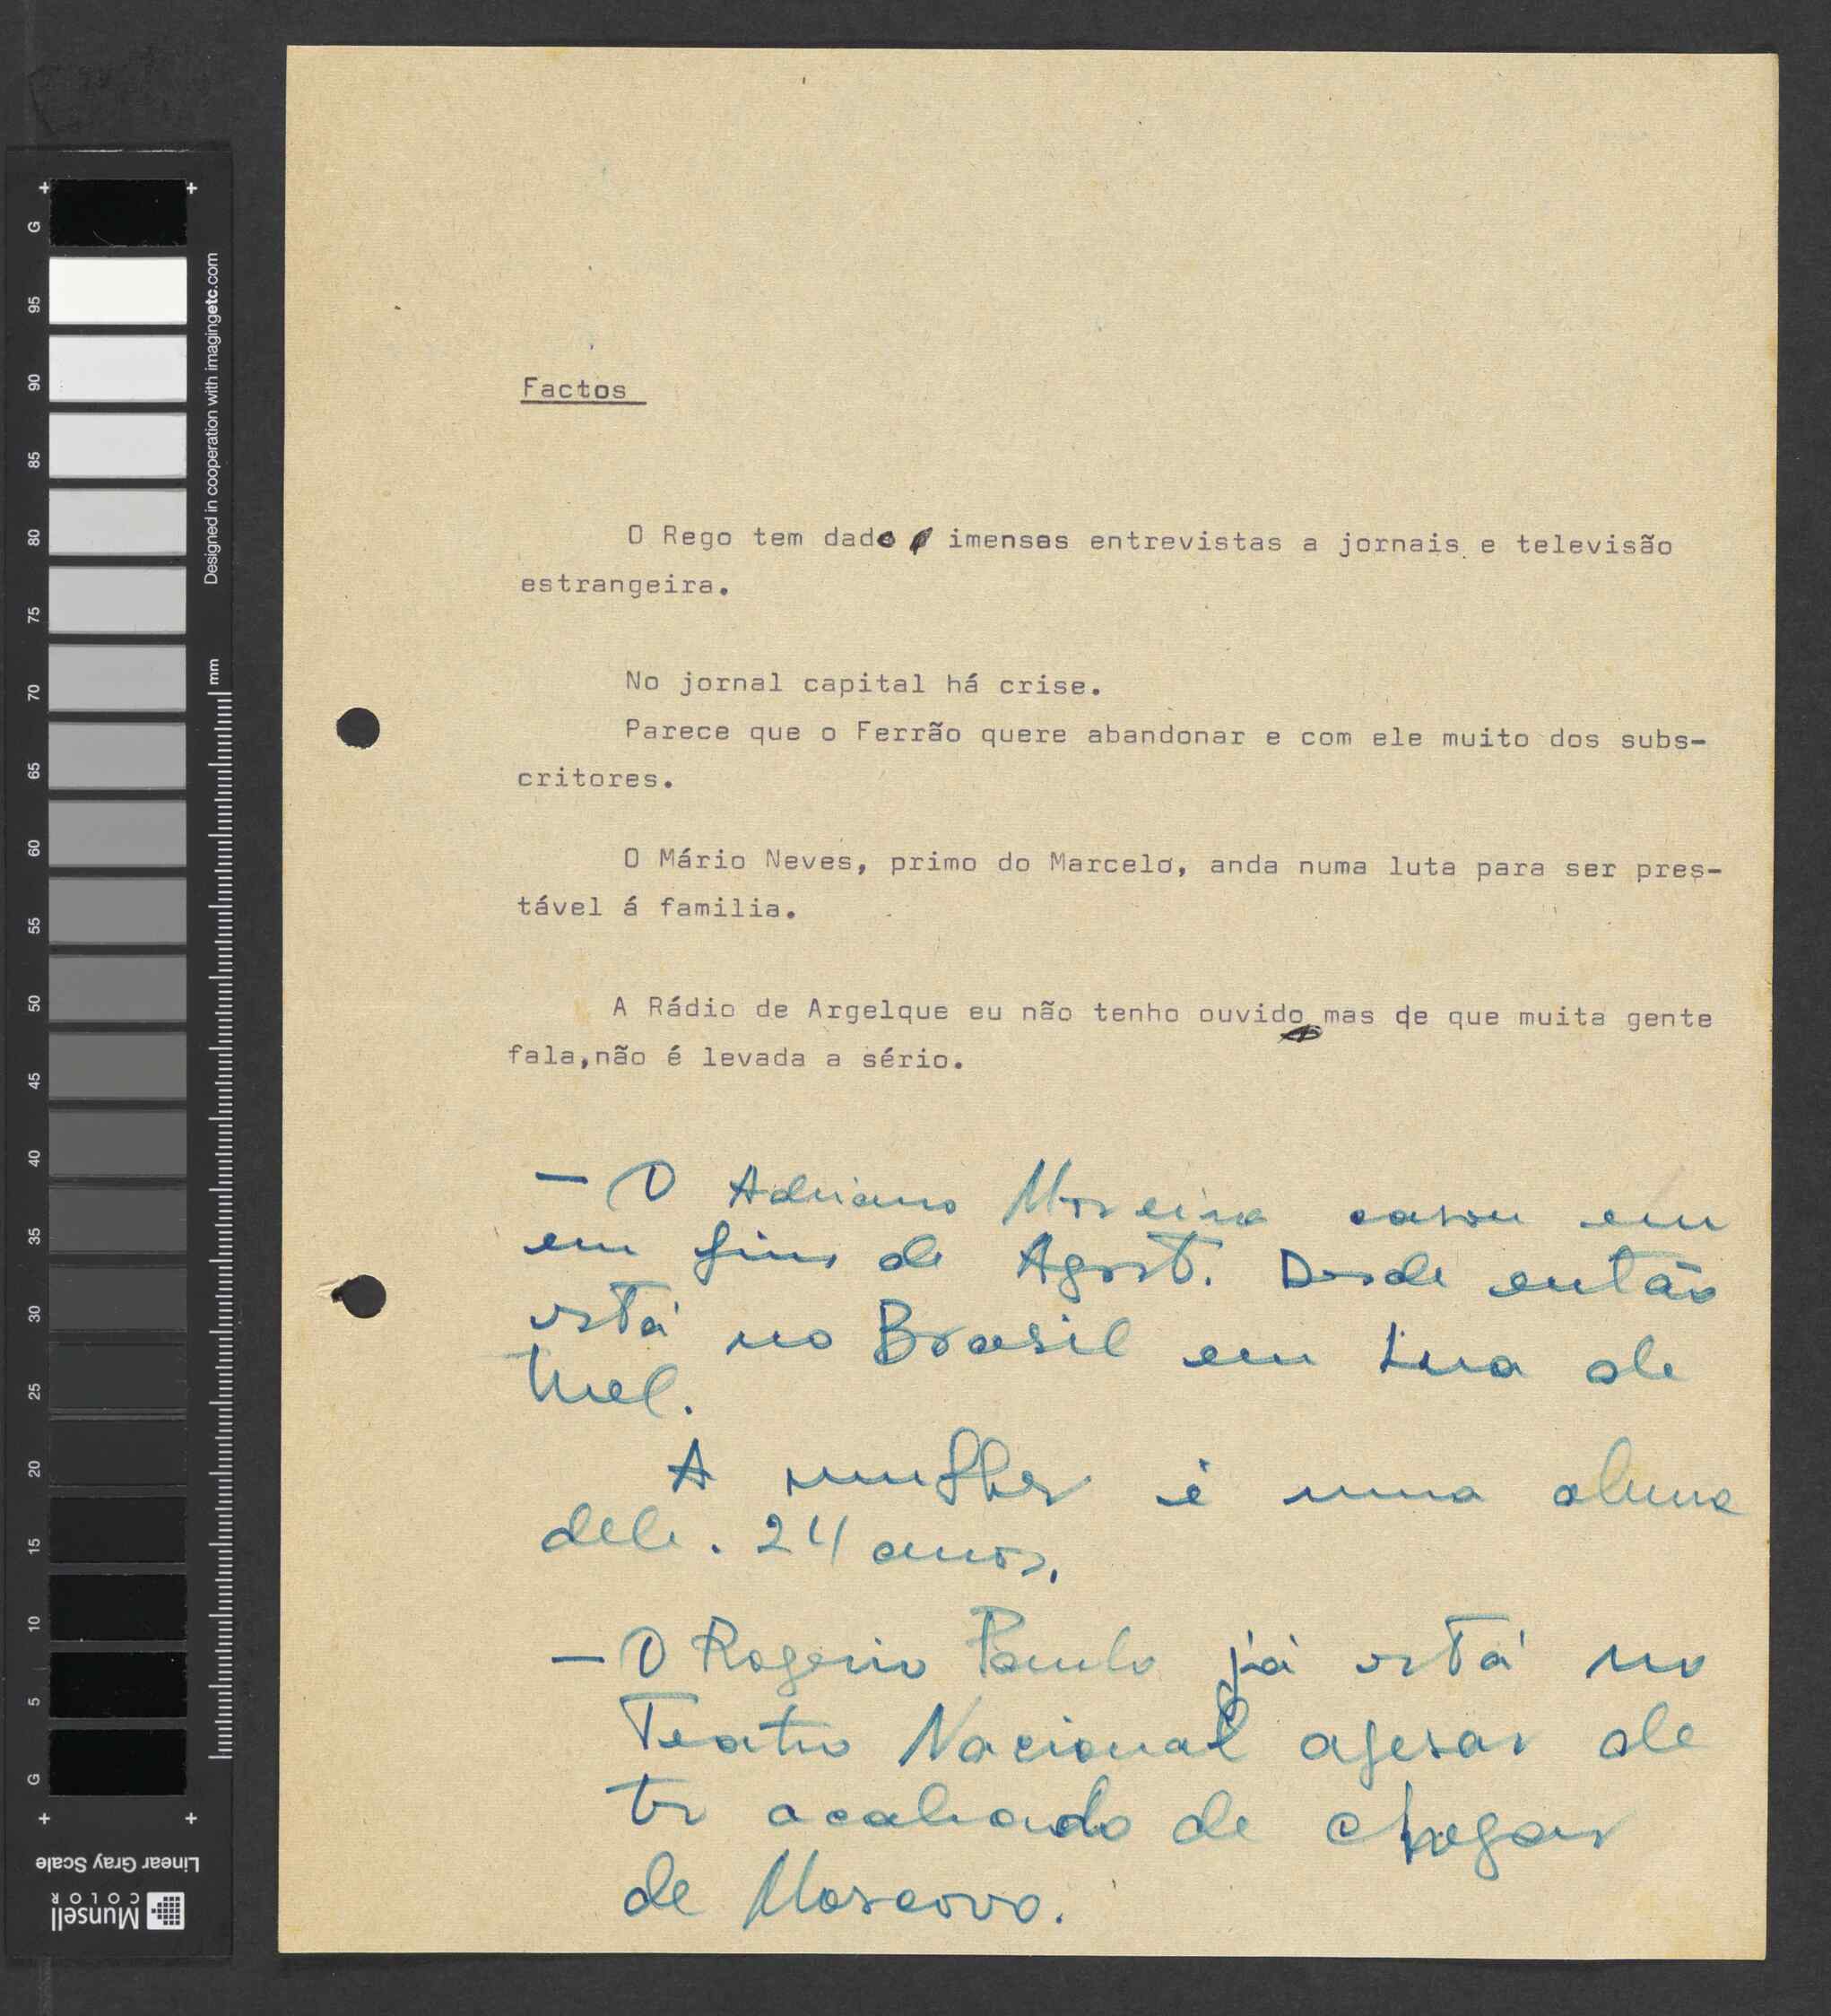 Factos
O Rego tem dado imensas entrevistas a jornais e televisão
estrangeira.
No jornal capital há crise.
Parece que o Ferrão quere abandonar e com ele muito dos subs-
critores.
O Mário Neves, primo do Marcelo, anda numa luta para ser pres-
tável á familia.
A Rádio de Argelque eu não tenho ouvido mas de que muita gente
fala,não é levada a sério.
- O Adriano Moreira casou em
em fins de Agost. Desde então
está no Brasil em Lua de
Mel.
A mulher é uma aluna
dele. 24 anos.
- O Rogerio Paulo já está no
Teatro Nacional apesar de
ter acabado de chegar
de Moscovo.
G
95
90
85
80
75
70
65
60
55
50
45
40
35
30
25
20
15
10
5
G
Designed in cooperation with imagingetc.com
mm
Linear Gray Scale
Munsell
COLOR